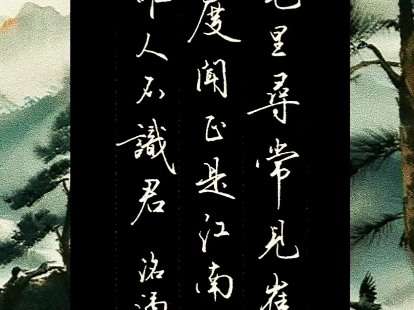 里尋常見崔
度聞正是江南
人不識君